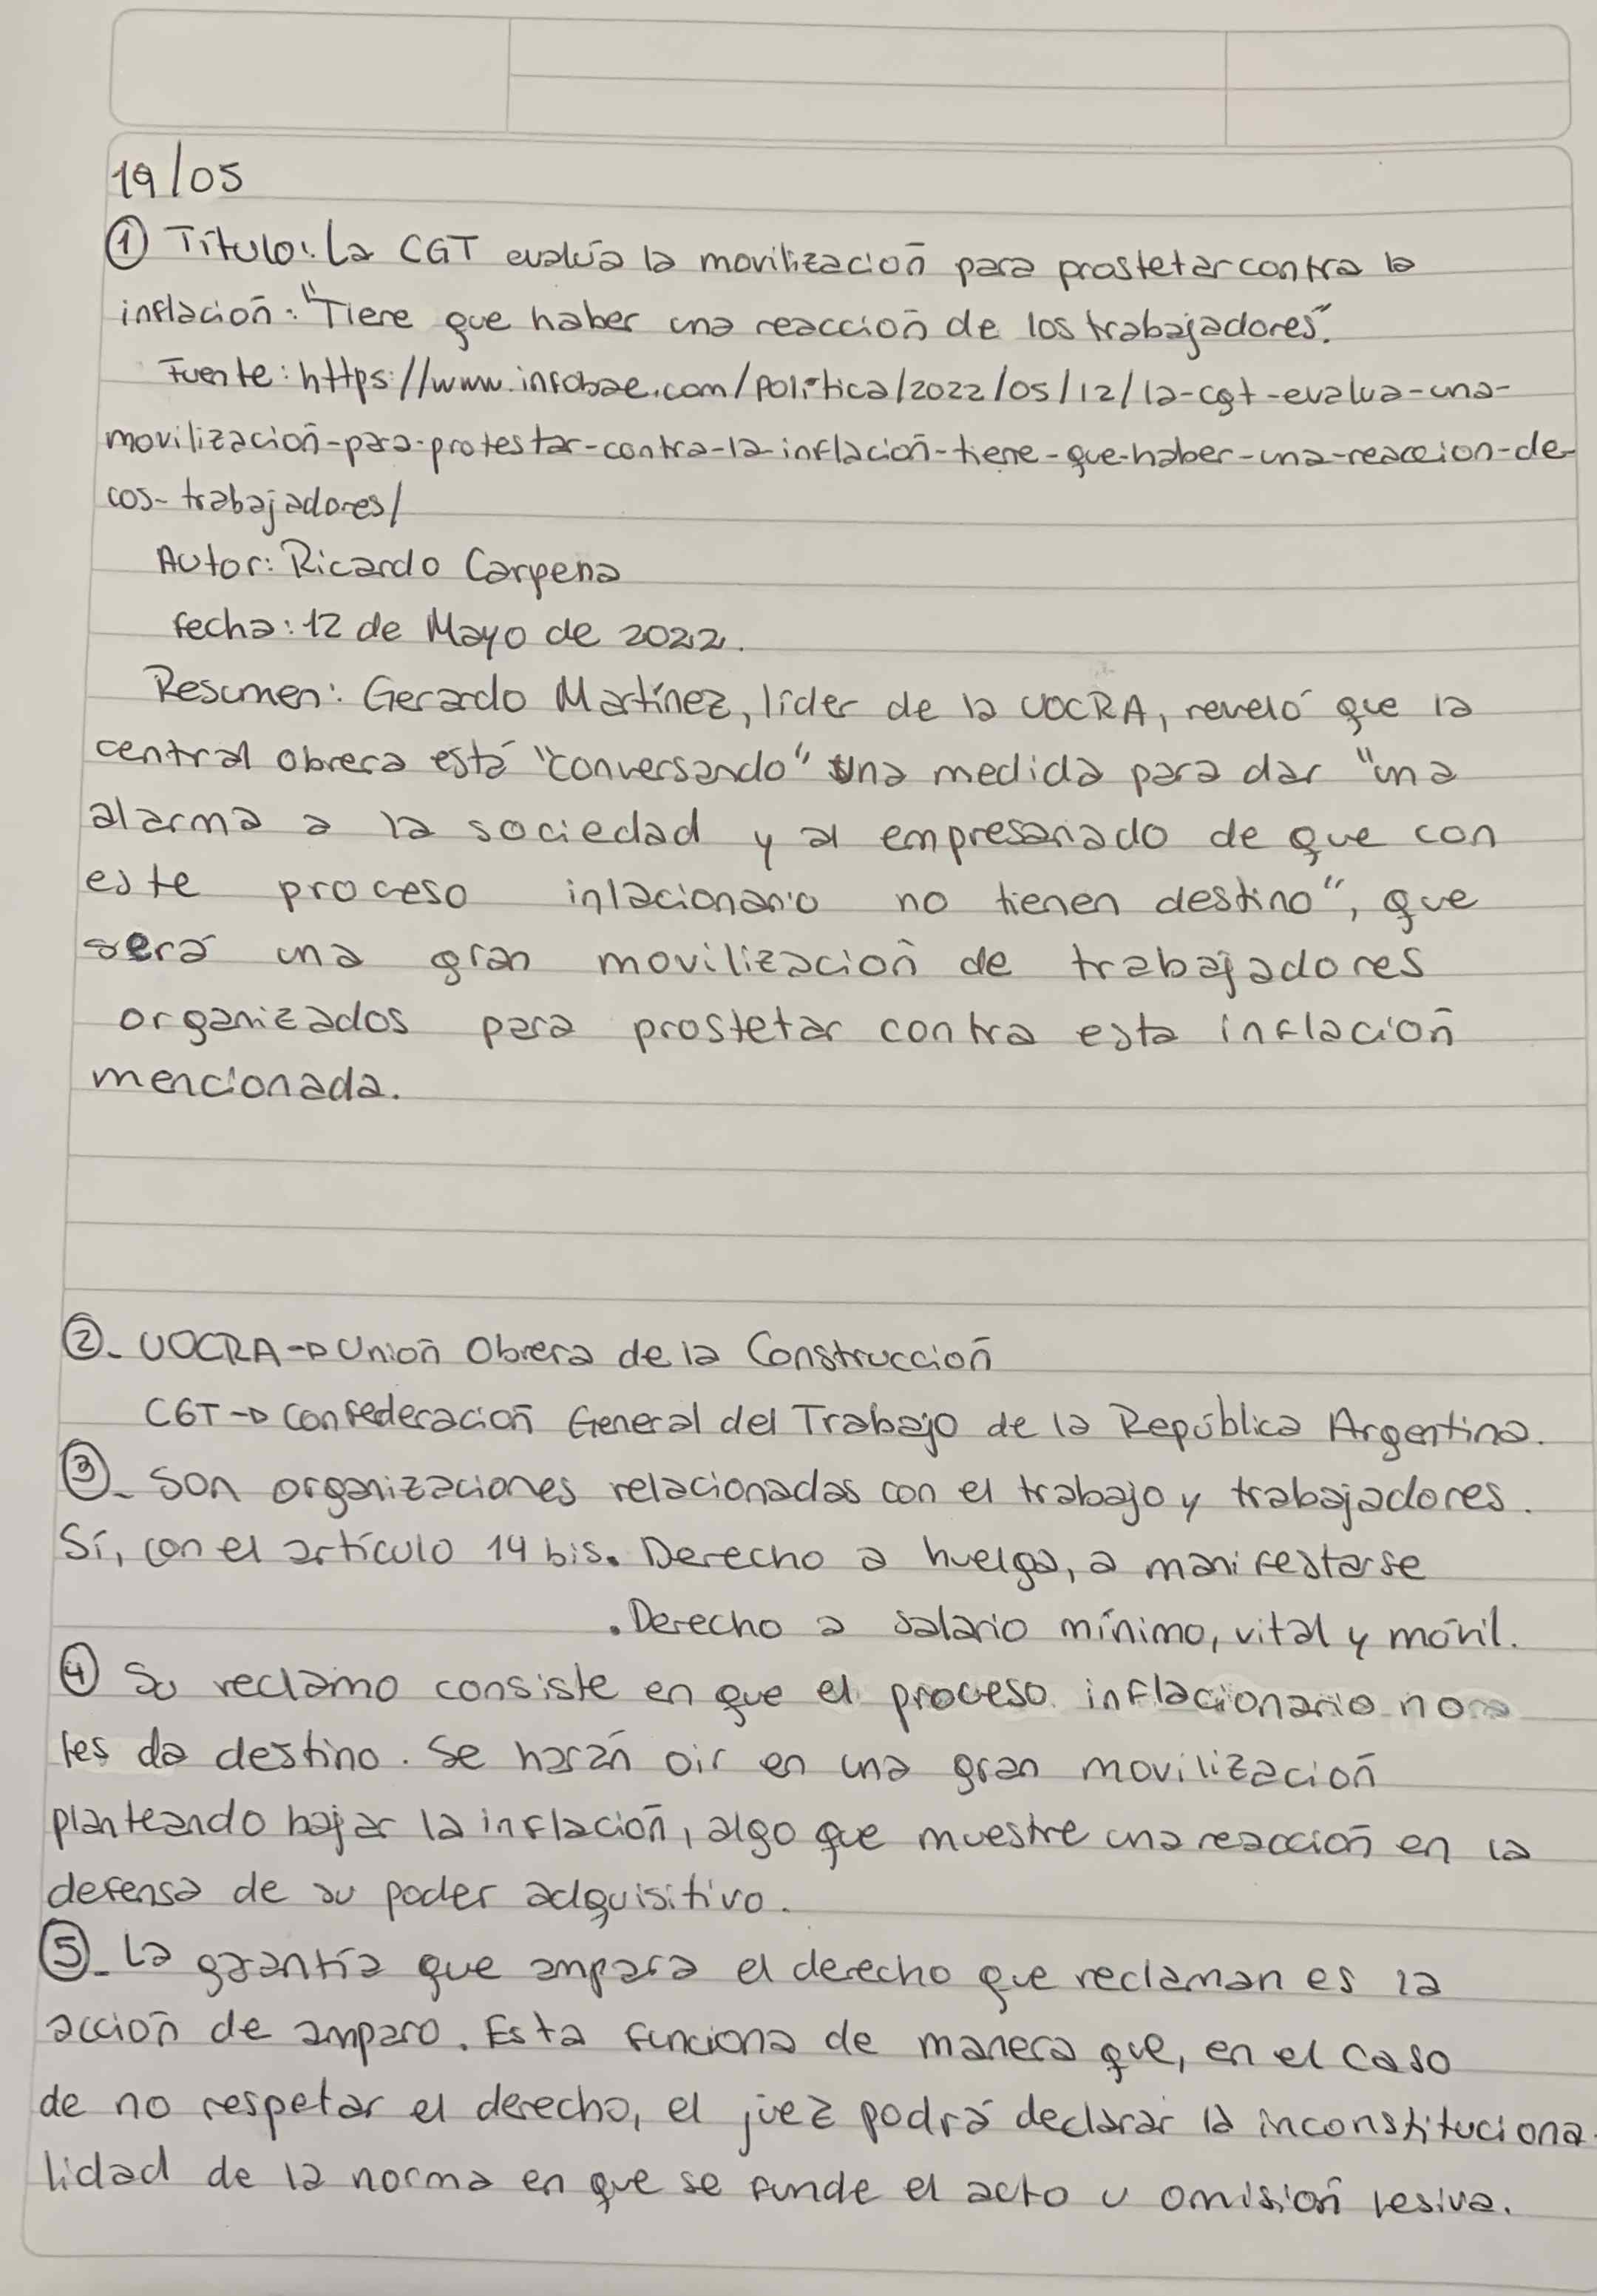 19/05
① Título: La CGT evalúa la movilización para prostetar contra la
inflación: "Tiene que haber una reacción de los trabajadores".
Fuente: https://www.infobae.com/politica/2022/05/12/la-cgt-evalua-una-
movilización-para-protestar-contra-la-inflación-tiene-que-haber-una-reaccion-de-
los-trabajadores/
Autor: Ricardo Carpena
fecha: 12 de Mayo de 2022.
Resumen: Gerardo Martínez, líder de la UOCRA, reveló que la
central obrera está "conversando" una medida para dar "una
alarma a la sociedad y al empresariado de que con
este proceso inlacionario no tienen destino", que
será una gran movilización de trabajadores
organizados para prostetar contra esta inflación
mencionada.
②- UOCRA → Unión Obrera de la Construcción
CGT → Confederación General del Trabajo de la República Argentina.
③- Son organizaciones relacionadas con el trabajo y trabajadores.
Sí, con el artículo 14 bis. Derecho a huelga, a manifestarse
. Derecho a salario mínimo, vital y móvil.
④ Su reclamo consiste en que el proceso inflacionario no
les da destino. Se harán oir en una gran movilización
planteando bajar la inflación, algo que muestre una reacción en la
defensa de su poder adquisitivo.
⑤- La garantía que ampara el derecho que reclaman es la
acción de amparo. Esta funciona de manera que, en el caso
de no respetar el derecho, el juez podrá declarar la inconstituciona-
lidad de la norma en que se funde el acto u omisión lesiva.